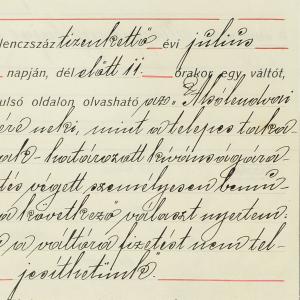 lenczszáz tizenkettő évi julius
napján, dél előtt 11. órakor egy váltót,
ulsó oldalon olvasható az „Alsólendvai
ére neki, mint a telepes
ak - határozott kivánságára
tés végett személyesen bemu-
a következő választ nyertem:
a váltóra fizetést nem tel-
jesithetünk".